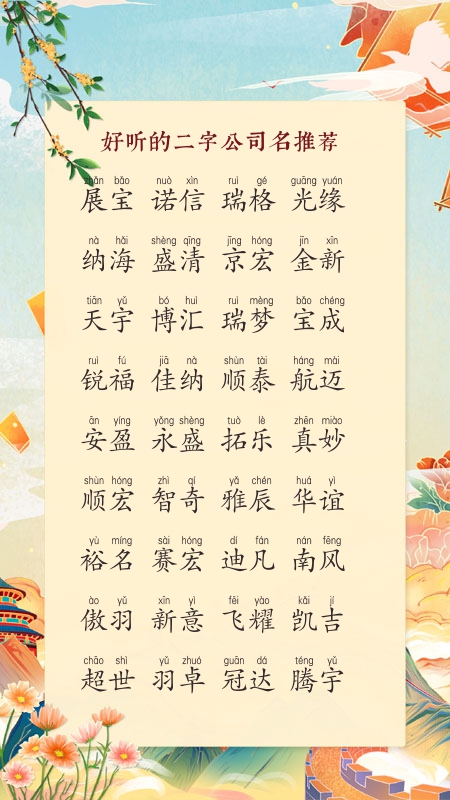 好听的二字公司名推荐
zhǎn bǎo nuò xìn ruì gé guāng yuán
展宝 诺信 瑞格 光缘
nà hǎi shèng qīng jīng hóng jīn xīn
纳海 盛清 京宏 金新
tiān yǔ bó huì ruì mèng bǎo chéng
天宇 博汇 瑞梦 宝成
ruì fú jiā nà shùn tài háng mài
锐福 佳纳 顺泰 航迈
ān yíng yǒng shèng tuò lè zhēn miào
安盈 永盛 拓乐 真妙
shùn hóng zhì qí yǎ chén huá yì
顺宏 智奇 雅辰 华谊
yù míng sài hóng dí fán nán fēng
裕名 赛宏 迪凡 南风
ào yǔ xīn yì fēi yào kǎi jí
傲羽 新意 飞耀 凯吉
chāo shì yǔ zhuó guān dá téng yǔ
超世 羽卓 冠达 腾宇